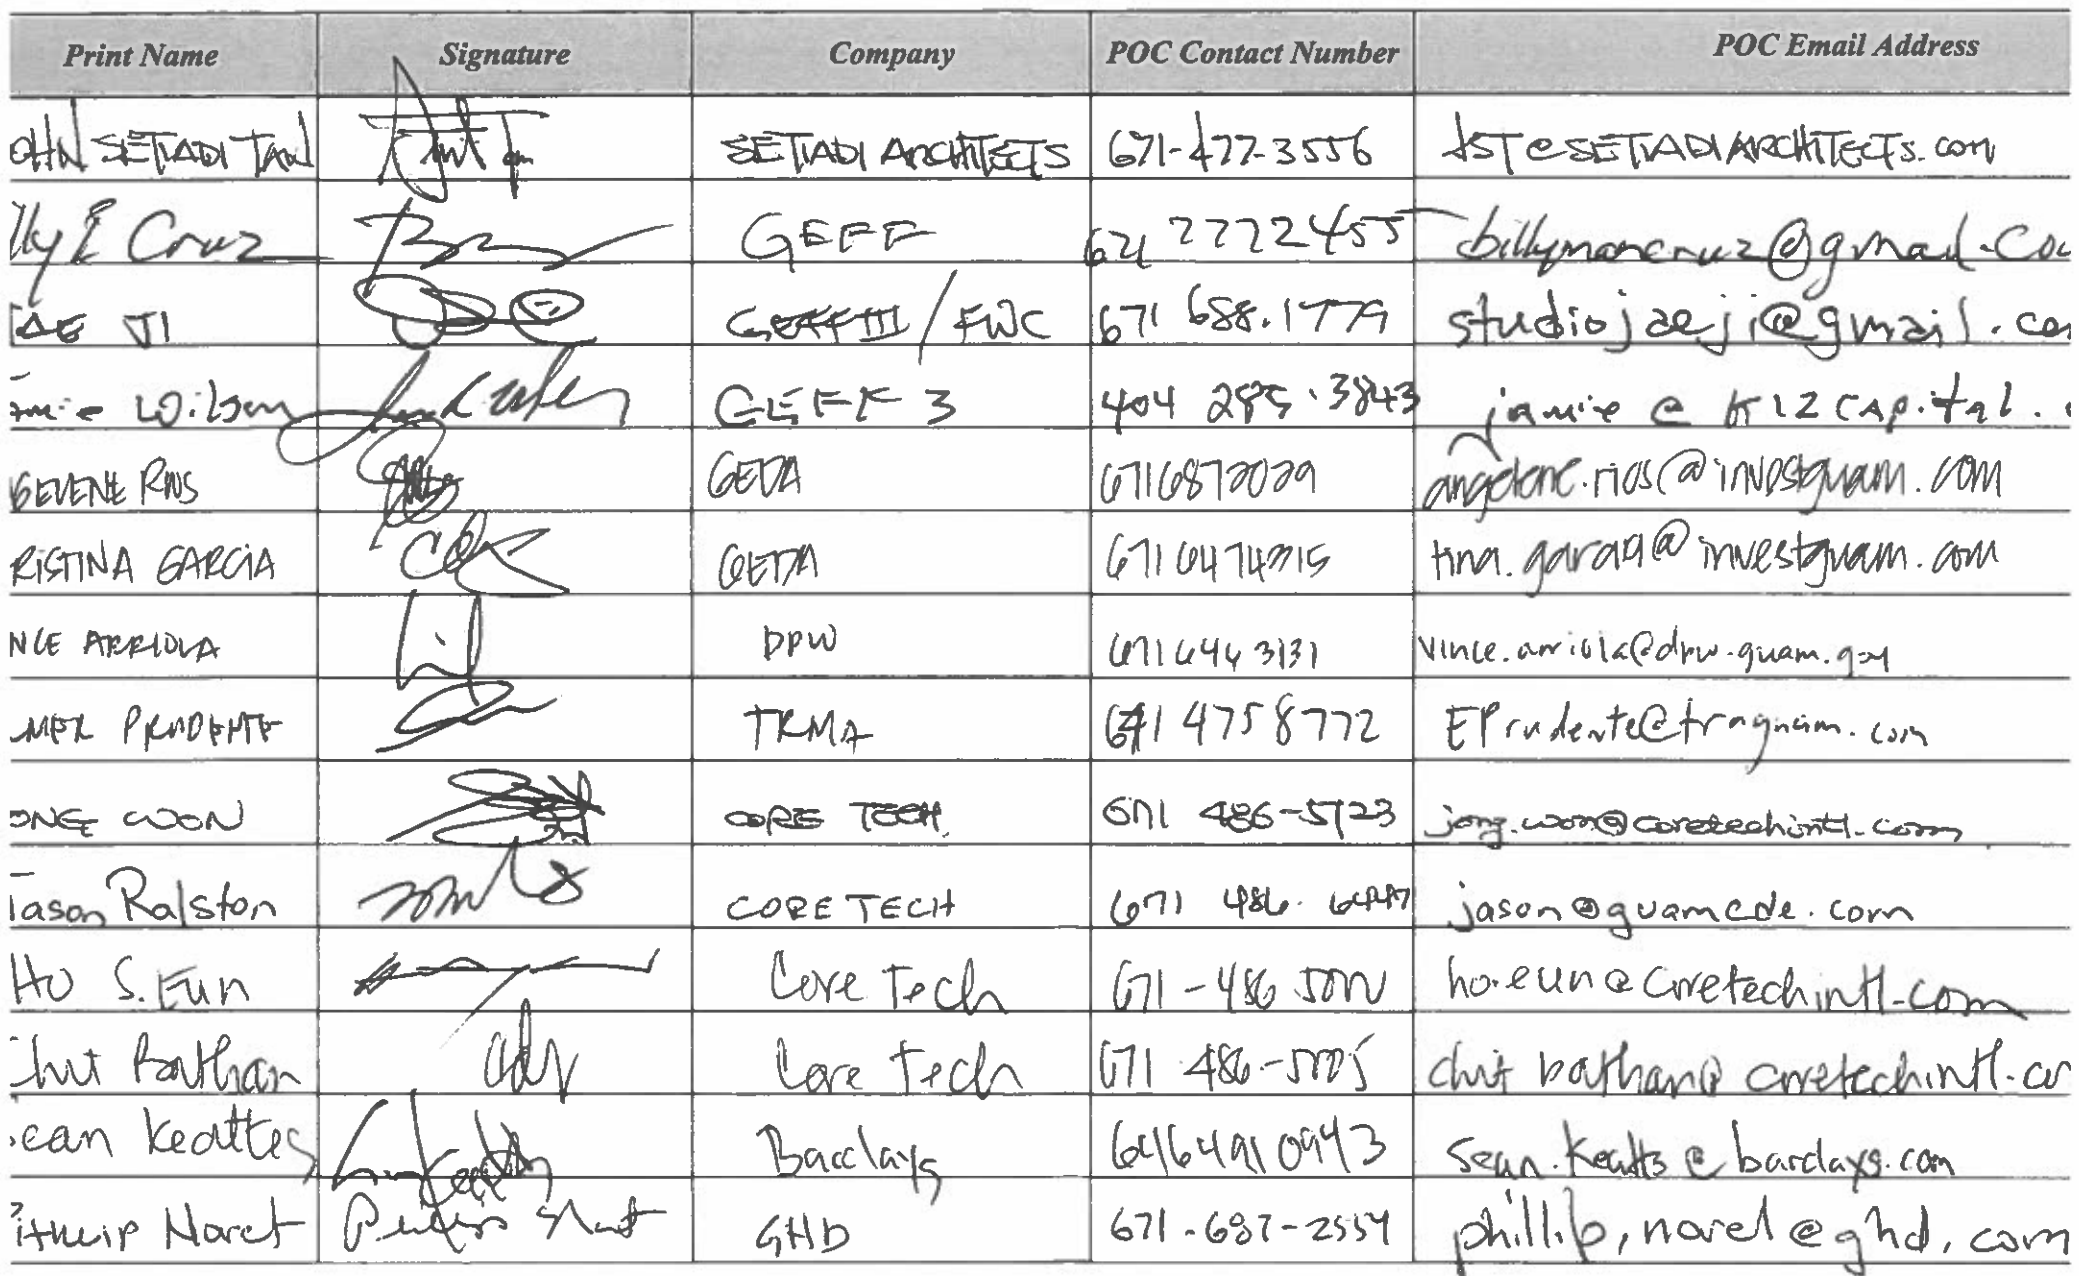 Print Name Signature Company POC Contact Number POC Email Address
OHN SETIADI TAN SETIADI ARCHITECTS 671-477-3556 JST@SETIADIARCHITECTS.com
lly E Cruz GEFF 671 7772455 billymancruz@gmail.co
JAE JI GEFFIII/FWC 671 688.1779 studiojaeji@gmail.co
amie Wilson GEFF 3 404 285.3843 jamie@K12Capital.
GELENE RIOS GEDA 6716872029 angelene.rios@investguam.com
RISTINA GARCIA GEDA 6716474315 tina.garcia@investguam.com
NCE ARRIOLA DPW 6716463131 vince.arriola@dpw.guam.gov
LMER PRUDENTE TRMA 671 4758772 EPrudente@tragnam.com
ONG WON CORE TECH 671 486-5723 jong.won@coretechintl.com
Jason Ralston CORE TECH 671 486. 6447 jason@guamcde.com
HO S. Eun Core Tech 671-486 ho.eun@coretechintl.com
Chit Bathan Core Tech 671 486-5005 chit bathan@coretechintl.co
ean Keattes Barclays 6464910943 sean.keatts@barclays.com
Noret GHD 671-687-2554 phillip.noret@ghd.com